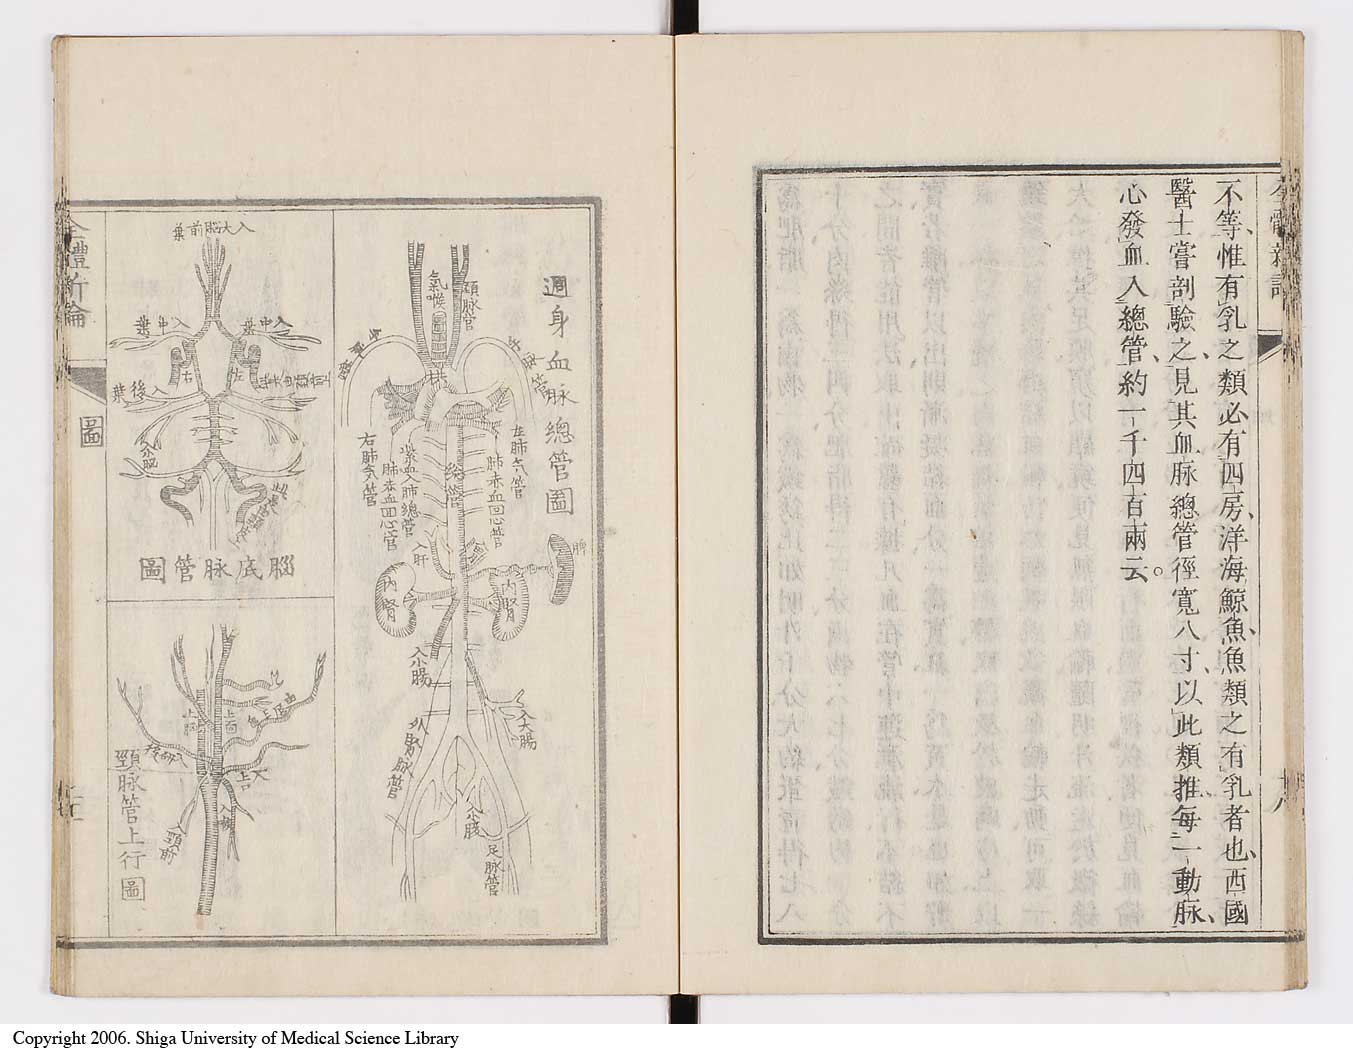 不等、惟有乳之類必有四房、洋海鯨魚、魚類之有乳者也、西國
醫士嘗剖驗之、見其血脉總管徑寬八寸、以此類推、每一動脉、
心發血入總管、約一千四百兩云。
週身血脉總管圖
頸脉管
氣喉
手脉管
左肺氣管
肺赤血回心管
總管
紫血入肺總管
肺赤血回心管
右肺氣管
入肝
脾
內腎
內腎
入小腸
入大腸
外腎脉管
足脉管
入大腦前葉
入中葉
入中葉
左
右
入後葉
小腦
腦底脉管圖
入頸前
頸脉管上行圖
全體新論
圖